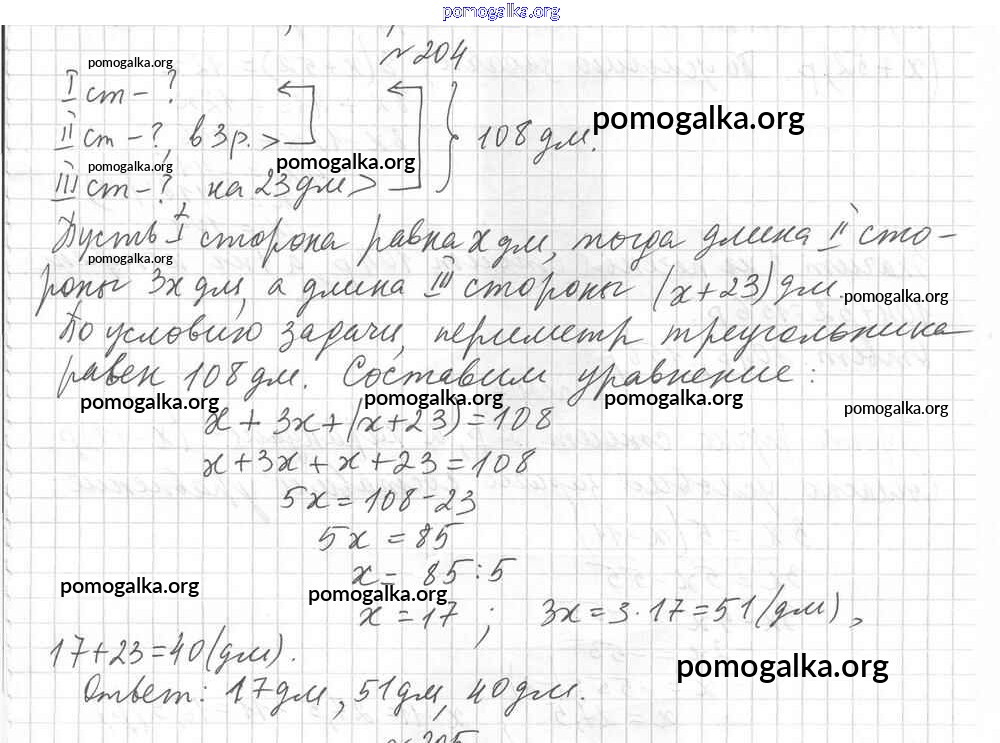 pomogalka.org
№204
pomogalka.org
I ст - ?
II ст - ?, в 3 р. > 108 дм. pomogalka.org
pomogalka.org pomogalka.org
III ст - ? на 23 дм >
Пусть I сторона равна x дм, тогда длина II сто-
pomogalka.org
роны 3x дм, а длина III стороны (x+23) дм.
pomogalka.org
По условию задачи, периметр треугольника
равен 108 дм. Составим уравнение:
pomogalka.org pomogalka.org pomogalka.org pomogalka.org
x + 3x + (x+23) = 108
x + 3x + x + 23 = 108
5x = 108 - 23
5x = 85
x = 85 : 5
pomogalka.org pomogalka.org
x = 17 ; 3x = 3 · 17 = 51 (дм),
17 + 23 = 40 (дм).
pomogalka.org
Ответ: 17 дм, 51 дм, 40 дм.
№205